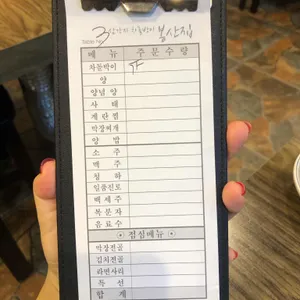 3 삼각지 차돌박이 봉산집
Table No.
메 뉴 주 문 수 량
차돌박이 下
양
양념 양
사 태
계 란 찜
막장찌개
양 밥
소 주
맥 주
청 하
일품진로
백 세 주
복 분 자
음 료 수
점심메뉴
막장전골
김치전골
라면사리
특 선
합 계